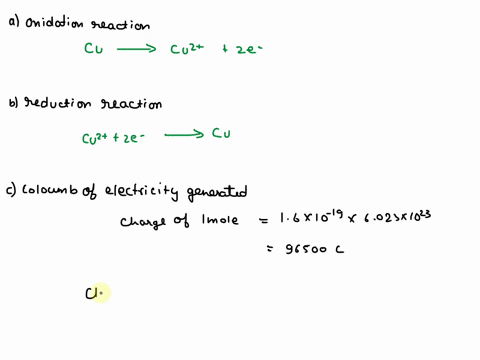 a) oxidation reaction
Cu ⟶ Cu²⁺ + 2e⁻
b) reduction reaction
Cu²⁺ + 2e⁻ ⟶ Cu
c) Coloumb of electricity generated
Charge of 1mole = 1.6 × 10⁻¹⁹ × 6.023×10²³
= 96500 C
Cl